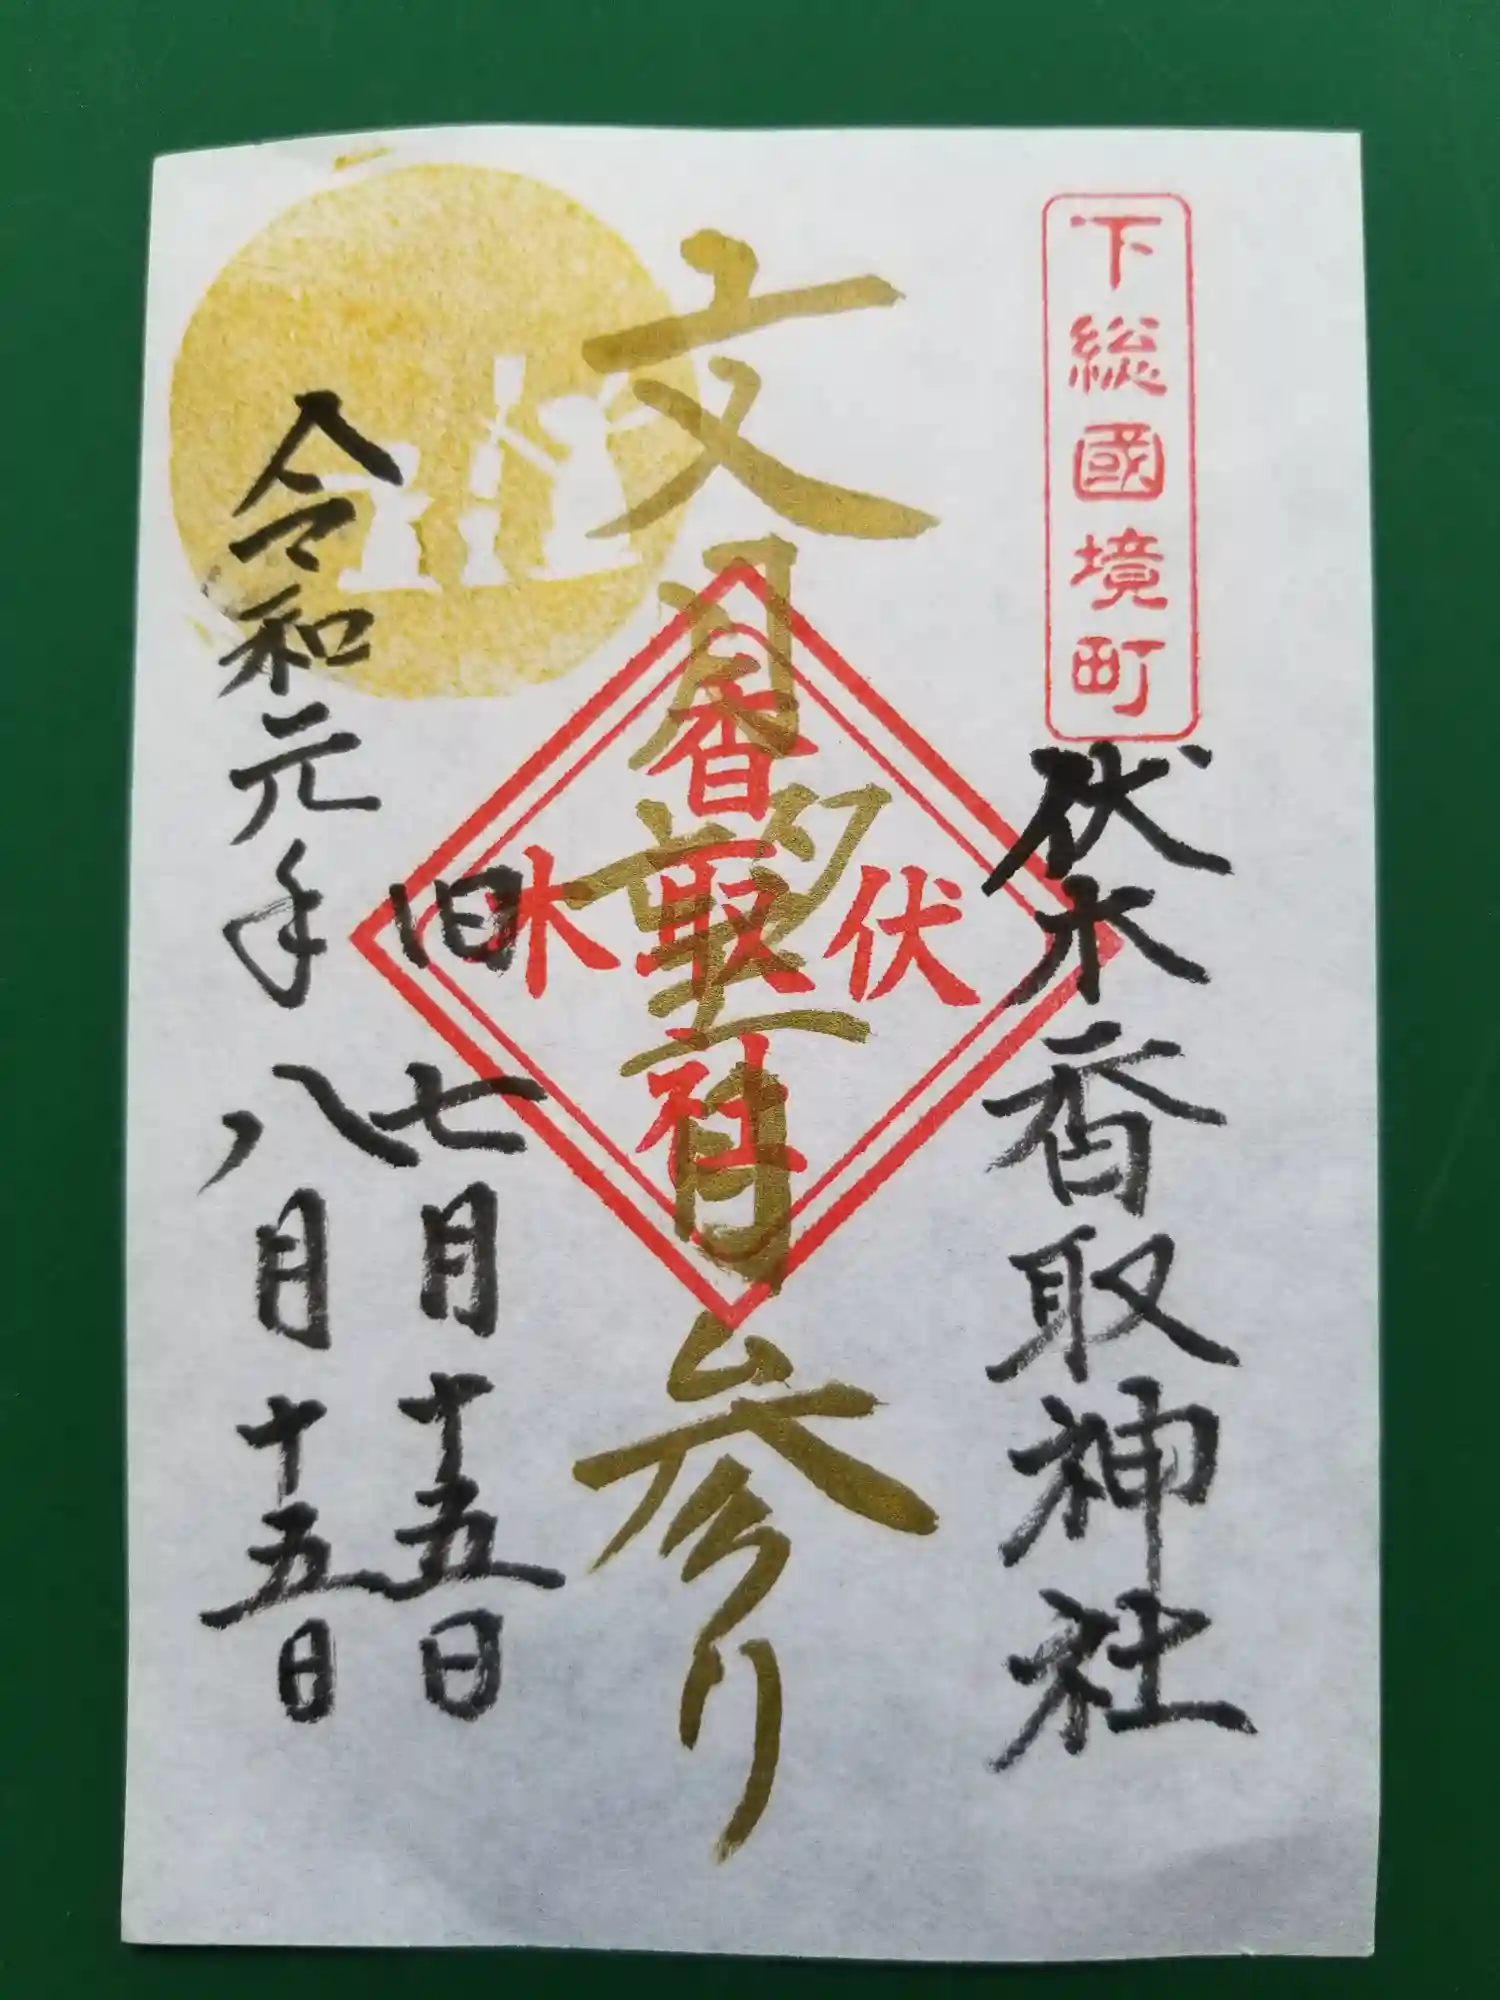 下総國境町
伏木香取神社
文月望月参り
香取社
伏木
旧七月十五日
令和元年八月十五日